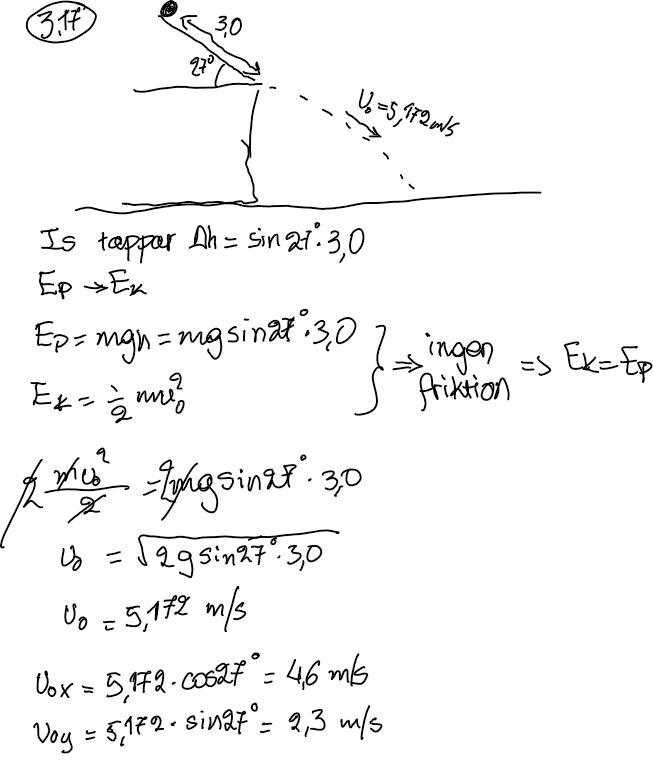 3,17
3,0
27°
v₀=5,172 m/s
Is tappar Δh = sin 27°·3,0
Ep → Ek
Ep = mgh = mg sin 27°·3,0
Ek = 1/2 mv₀²
⇒ ingen friktion ⇒ Ek = Ep
2 mv₀²/2 = 2mg sin 27°·3,0
v₀ = √2g sin 27°·3,0
v₀ = 5,172 m/s
v₀x = 5,172·cos27° = 4,6 m/s
v₀y = 5,172·sin27° = 2,3 m/s